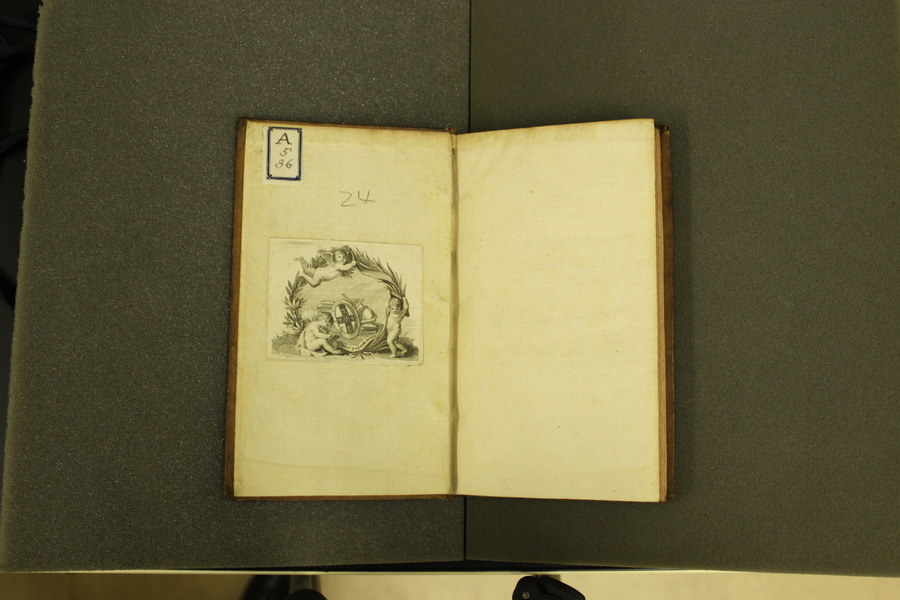 A
5
36
24